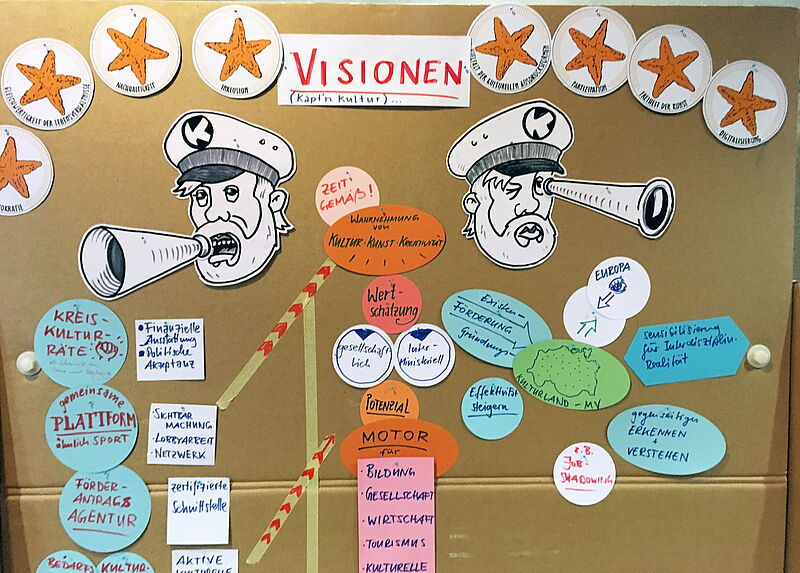 GLEICHWERTIGKEIT DER LEBENSVERHÄLTNISSE
NACHHALTIGKEIT
INKLUSION
VISIONEN
(Käpt'n Kultur)...
VIELFALT DER KULTURELLEN AUSDRUCKSFORMEN
PARTIZIPATION
FREIHEIT DER KUNST
DIGITALISIERUNG
OKRATIE
K
K
ZEIT
GEMÄß!
WAHRNEHMUNG
VON
KULTUR·KUNST·KREATIVITÄT
Wert-
schätzung
gesellschaft
lich
Inter-
Ministeriell
POTENZIAL
MOTOR
für
· BILDUNG
· GESELLSCHAFT
· WIRTSCHAFT
· TOURISMUS
· KULTURELLE
KREIS-
KULTUR-
RÄTE
• Finanzielle
Ausstattung
• Politische
Akzeptanz
gemeinsame
PLATTFORM
ähnlich SPORT
· SICHTBAR
MACHUNG
· LOBBYARBEIT
· NETZWERK
FÖRDER-
ANTRAGS
AGENTUR
zertifizierte
Schnittstelle
BEDARFS
KULTUR-
AKTIVE
KULTURELLE
Existenz-
FÖRDERUNG
Gründung
EUROPA
KULTURLAND-MV
Effektivität
steigern
sensibilisierung
für Interdisziplin-
Realität
gegenseitiges
ERKENNEN
+
VERSTEHEN
z.B.
JOB-
SHADOWING